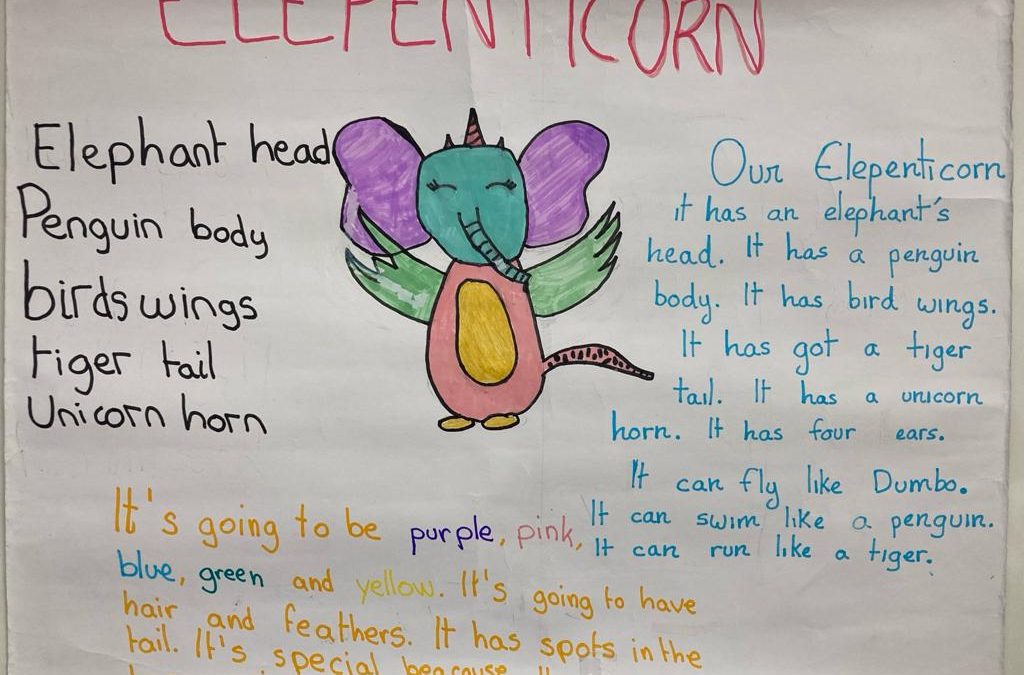 ELEPENTICORN
Elephant head
Penguin body
birds wings
tiger tail
Unicorn horn
Our Elepenticorn
it has an elephant's
head. It has a penguin
body. It has bird wings.
It has got a tiger
tail. It has a unicorn
horn. It has four ears.
It can fly like Dumbo.
It can swim like a penguin.
It can run like a tiger.
It's going to be purple, pink,
blue, green and yellow. It's going to have
hair and feathers. It has spots in the
tail. It's special beacause